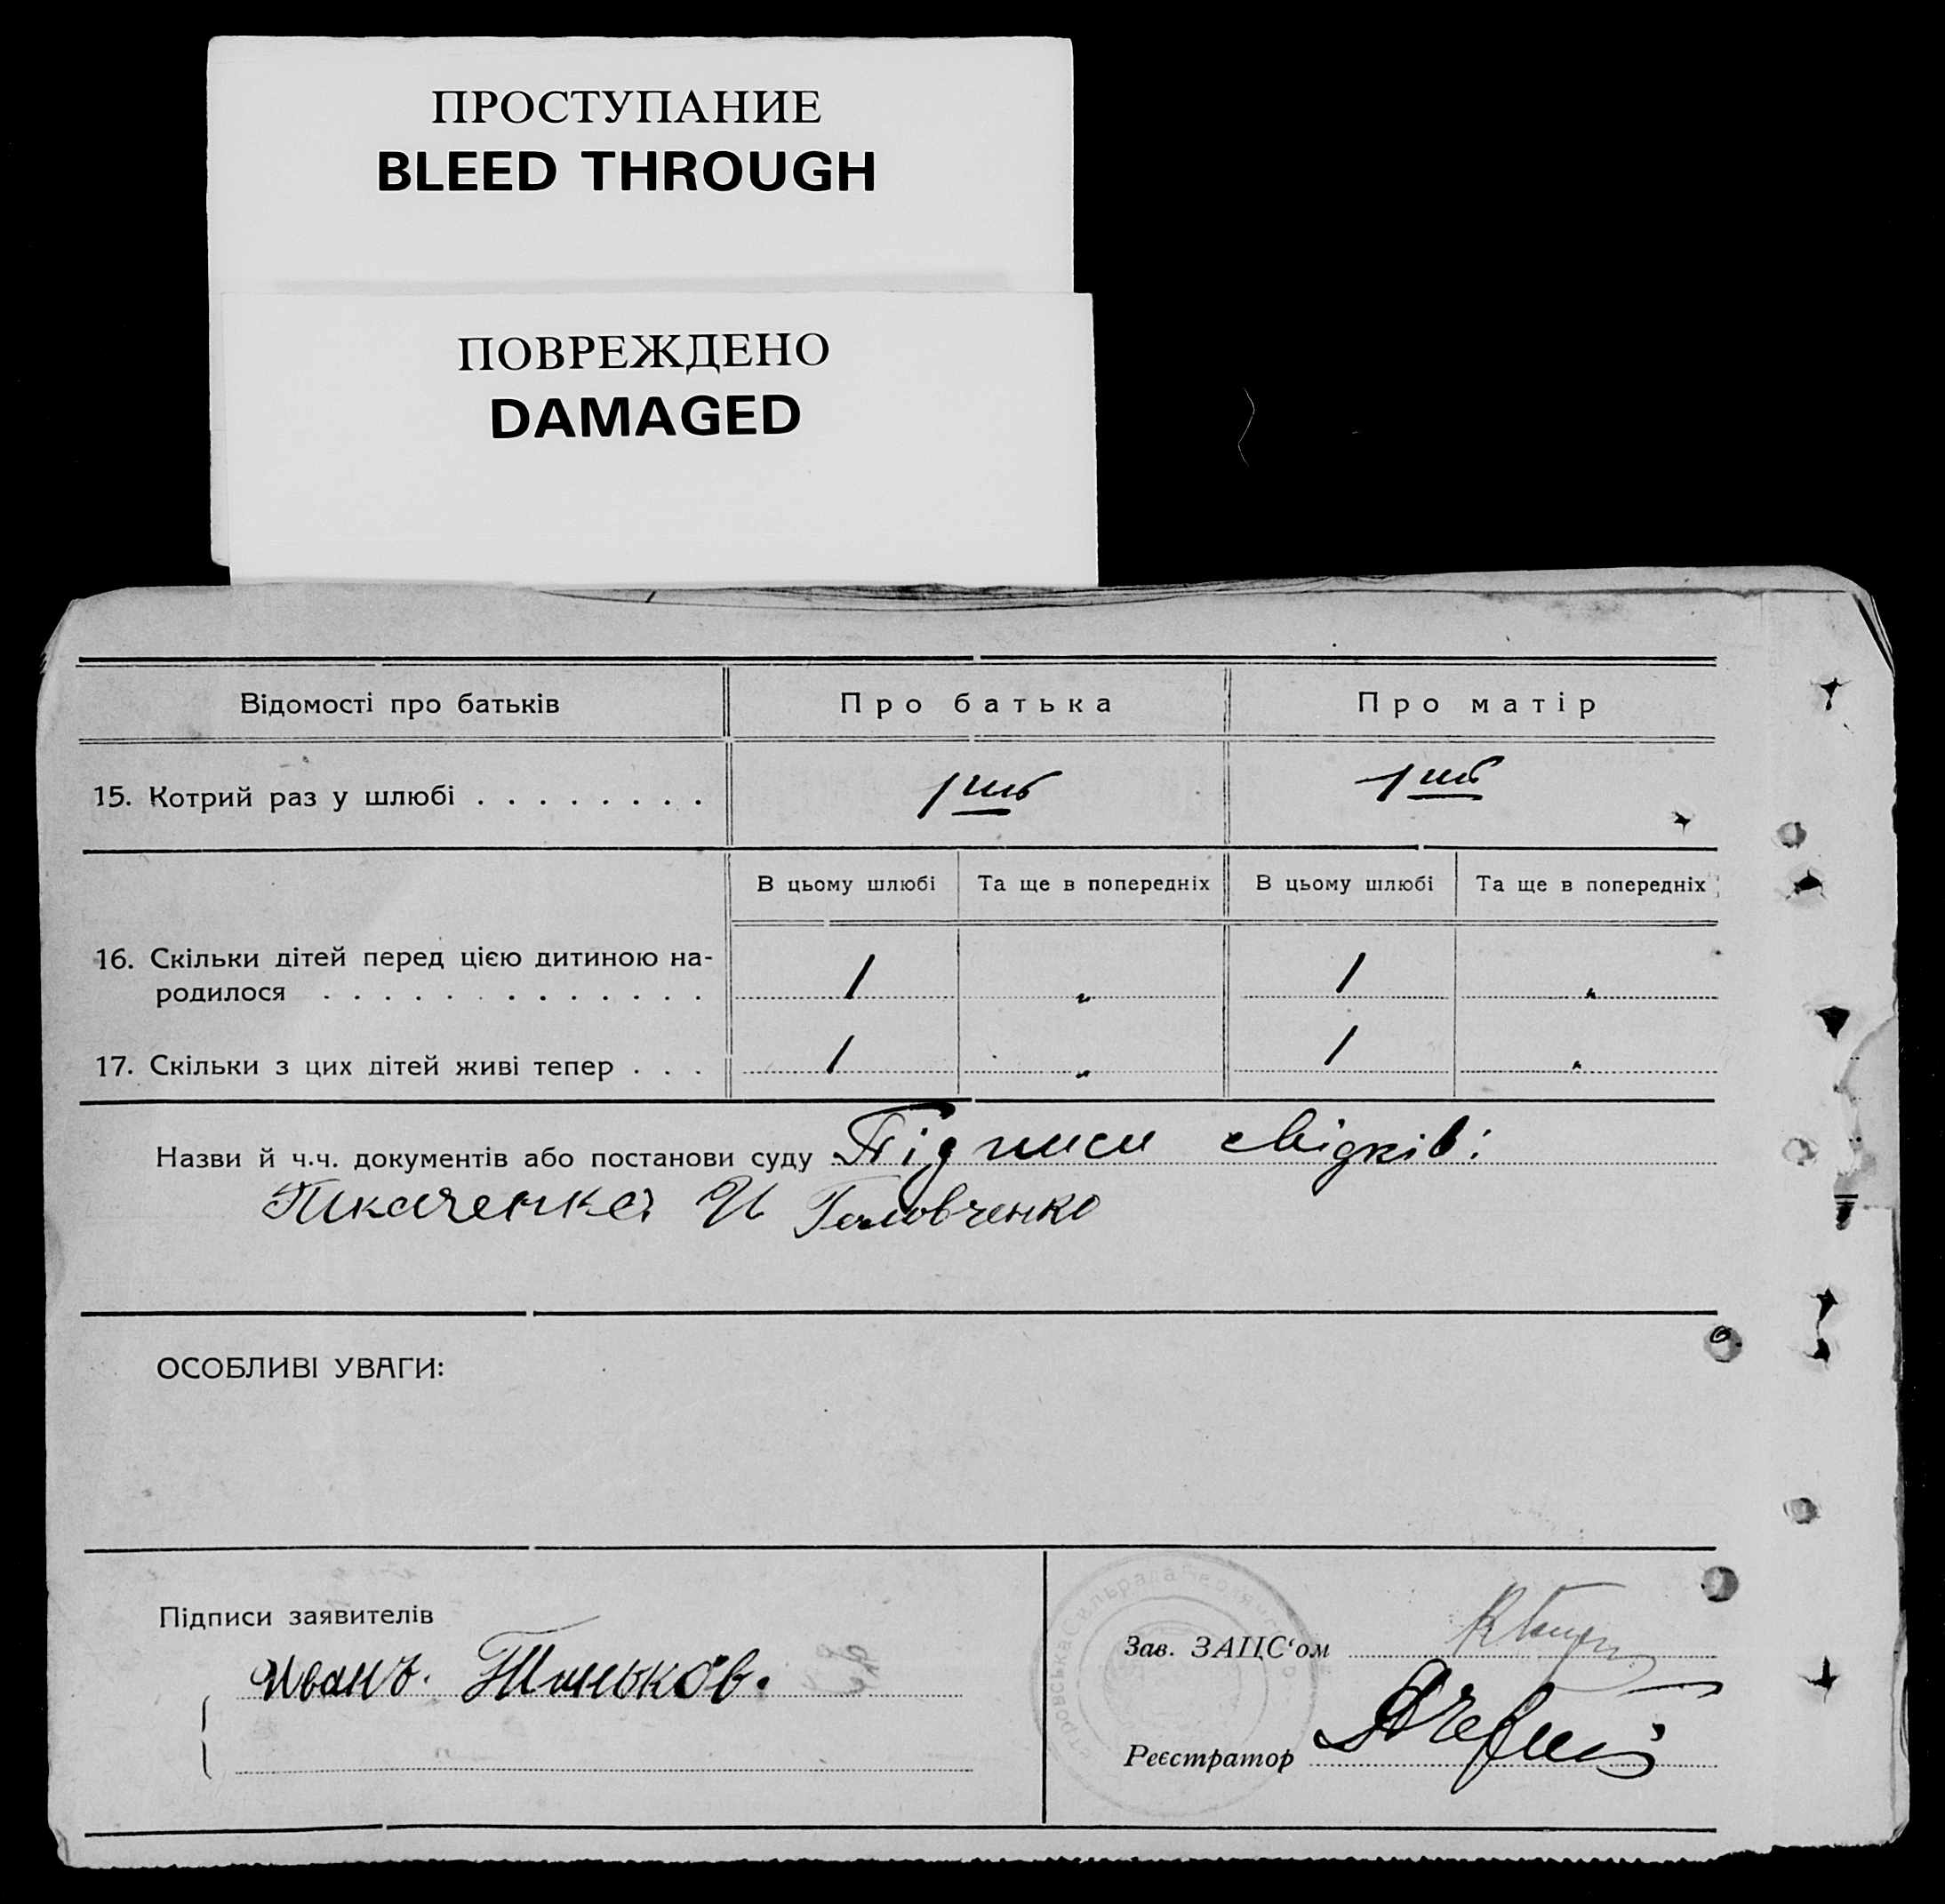 ПРОСТУПАНИЕ
BLEED THROUGH
ПОВРЕЖДЕНО
DAMAGED
Відомості про батьків Про батька Про матір
15. Котрий раз у шлюбі . . . . . . . . 1 ий 1 ий
В цьому шлюбі Та ще в попередніх В цьому шлюбі Та ще в попередніх
16. Скільки дітей перед цією дитиною на-
родилося . . . . . . . . . . . . . 1 " 1 "
17. Скільки з цих дітей живі тепер . . . 1 " 1 "
Назви й ч.ч. документів або постанови суду Підписи свідків:
Ткаченка И Головченко
ОСОБЛИВІ УВАГИ:
Підписи заявителів
Иванъ.
Зав. ЗАЦС‘ом
Реєстратор